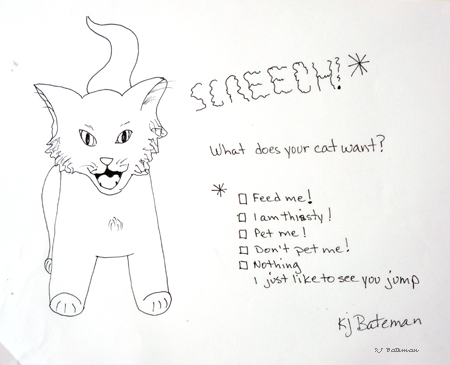 SCREECH!*
What does your cat want?
* ☐ Feed me!
☐ I am thirsty!
☐ Pet me!
☐ Don't pet me!
☐ Nothing
I just like to see you jump
KJ Bateman
KJ Bateman